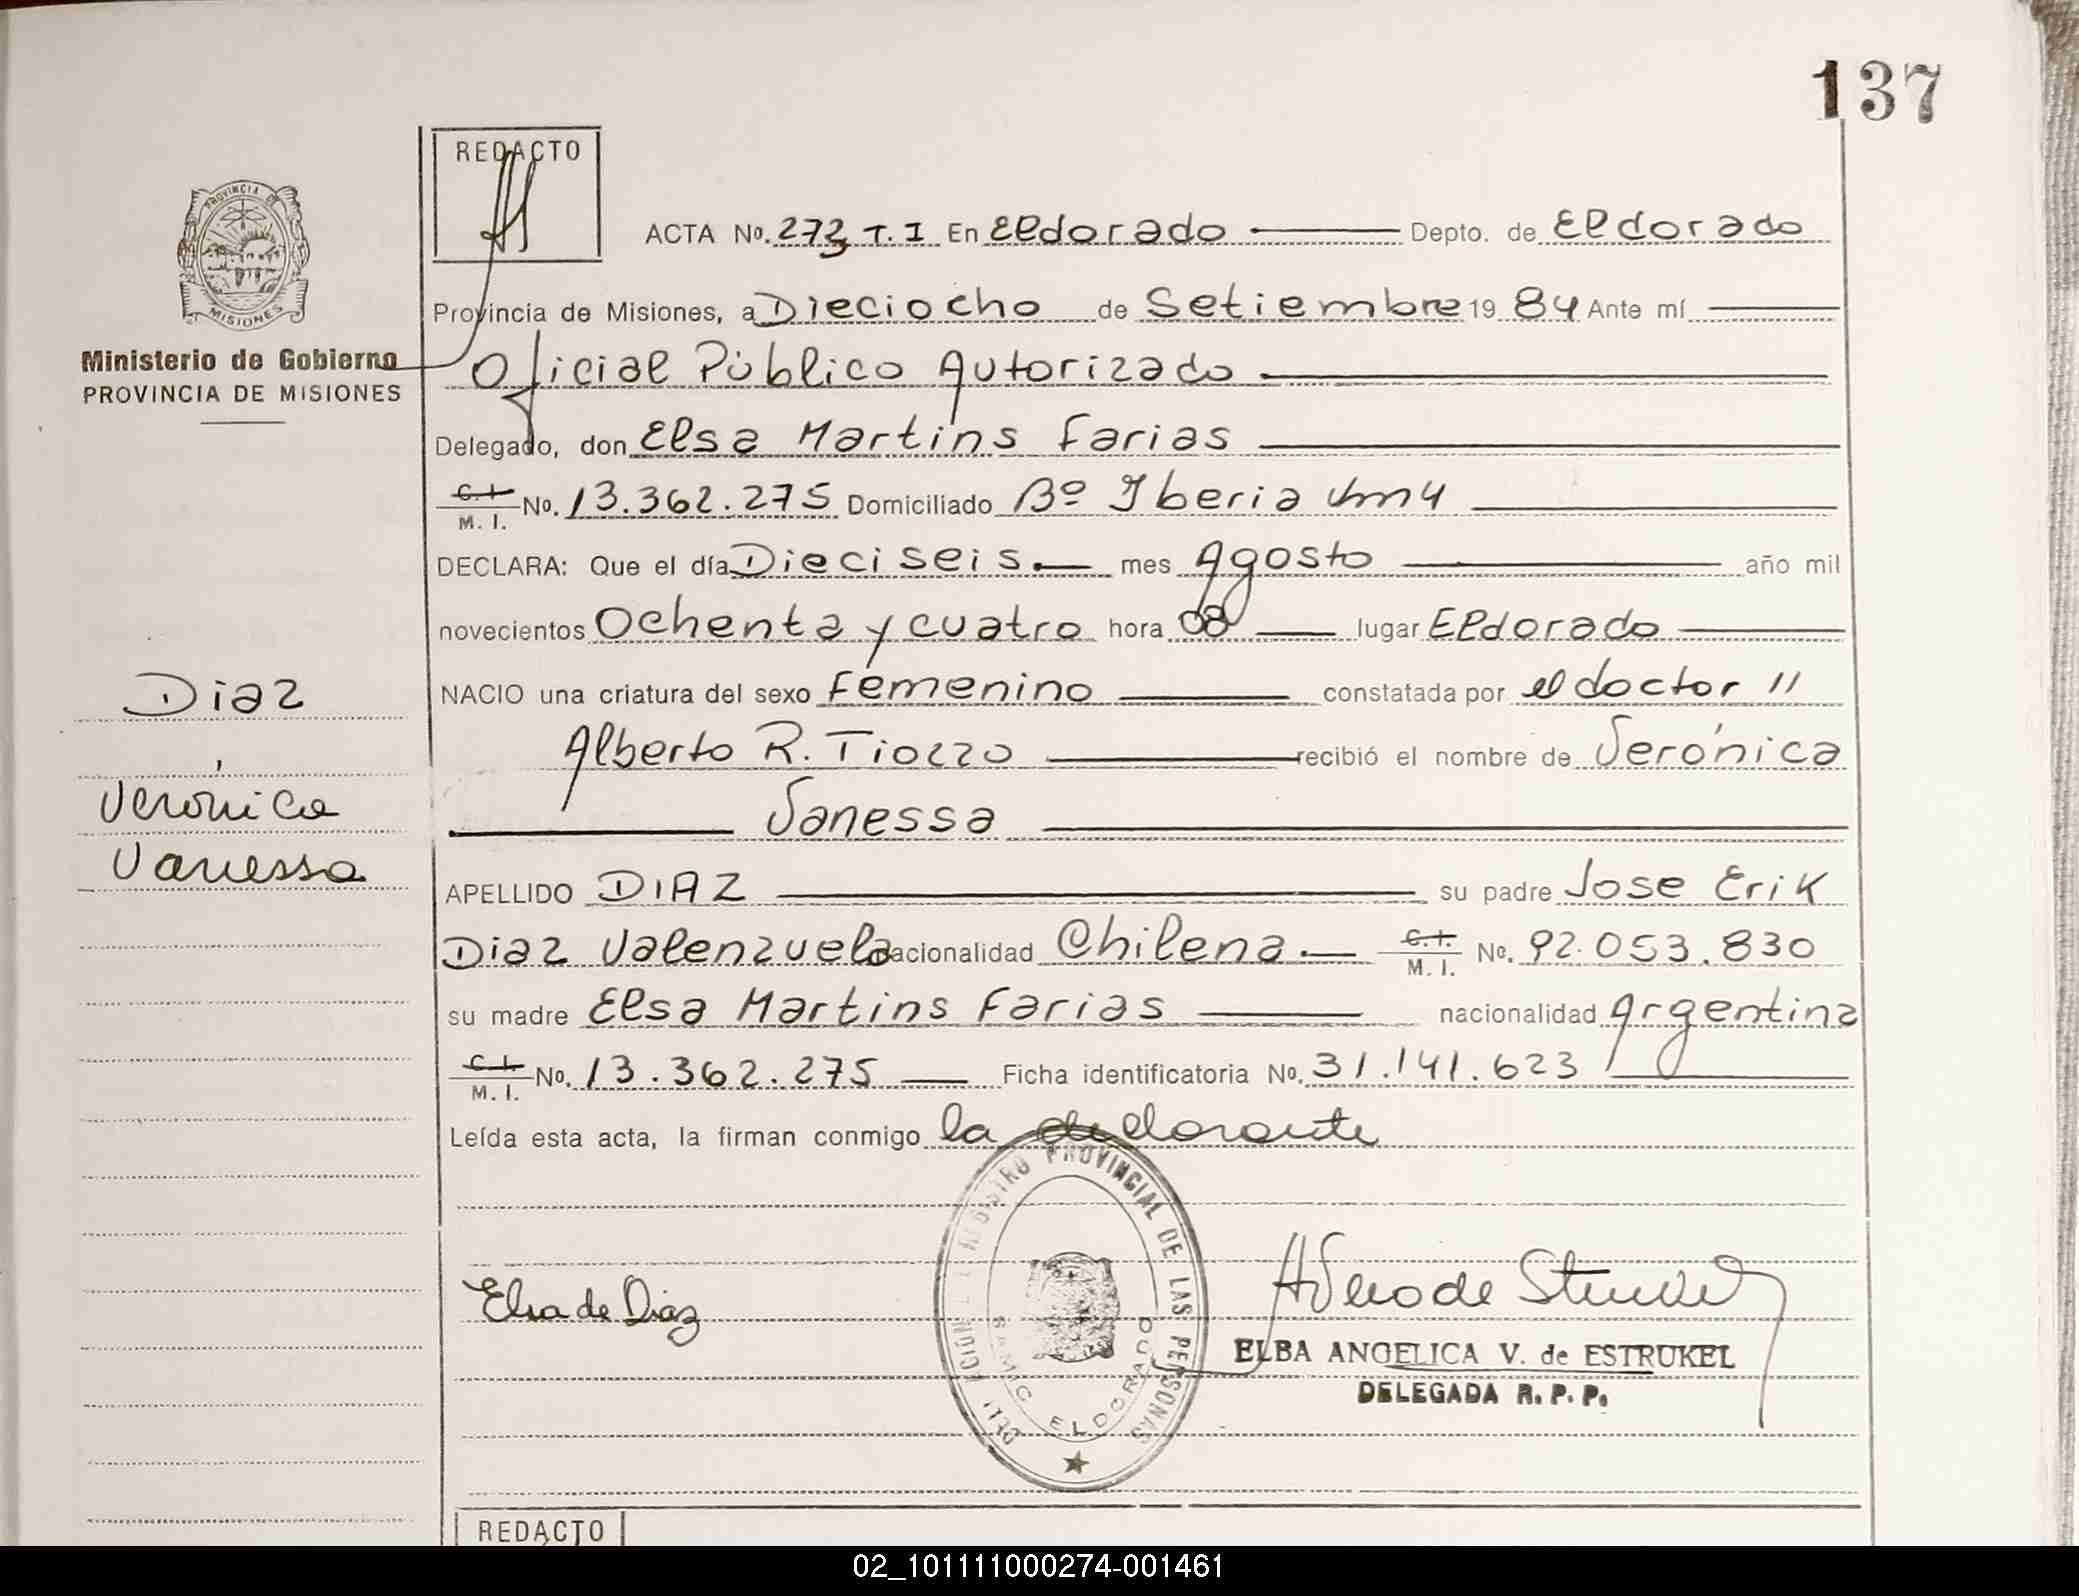 137
REDACTO
ACTA No. 273 T.I En Eldorado Depto. de Eldorado
Provincia de Misiones, a Dieciocho de Setiembre 1984 Ante mí
Oficial Público Autorizado
Delegado, don Elsa Martins Farias
C.I. M. I. No. 13.362.275 Domiciliado Bº Iberia km 4
DECLARA: Que el día Dieciseis mes Agosto año mil
novecientos Ochenta y cuatro hora 08 lugar Eldorado
NACIO una criatura del sexo Femenino constatada por el doctor //
Alberto R. Tiozzo recibió el nombre de Verónica
Vanessa
APELLIDO DIAZ su padre Jose Erik
Diaz Valenzuela nacionalidad Chilena C.I. M. I. No. 92.053.830
su madre Elsa Martins Farias nacionalidad Argentina
C.I. M. I. No. 13.362.275 Ficha identificatoria No. 31.141.623
Leída esta acta, la firman conmigo la declarante
PROVINCIA DE
MISIONES
Ministerio de Gobierno
PROVINCIA DE MISIONES
Diaz
Verónica
Vanessa
Elsa de Diaz
REGISTRO PROVINCIAL DE LAS PERSONAS
SAMIC ELDORADO
ELBA ANGELICA V. de ESTRUKEL
DELEGADA R. P. P.
REDACTO
02_101111000274-001461